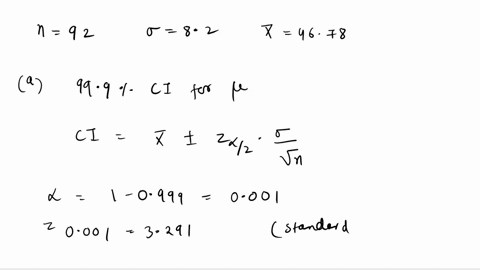 n = 92 σ = 8.2 x̄ = 46.78
(a) 99.9 % CI for μ
CI = x̄ ± z α/2 · σ/√n
α = 1 - 0.999 = 0.001
z 0.001 = 3.291 (standard